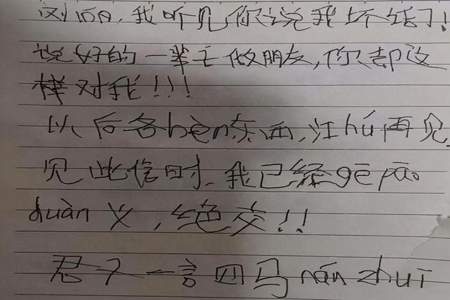 刘, 我听见你说我坏话了!
说好的一辈子做朋友,你却这
样对我!!!
以后各bèn东西,江hú再见.
见此信时,我已经gē páo
duàn义,绝交!!
君子一言四马nán zhuī